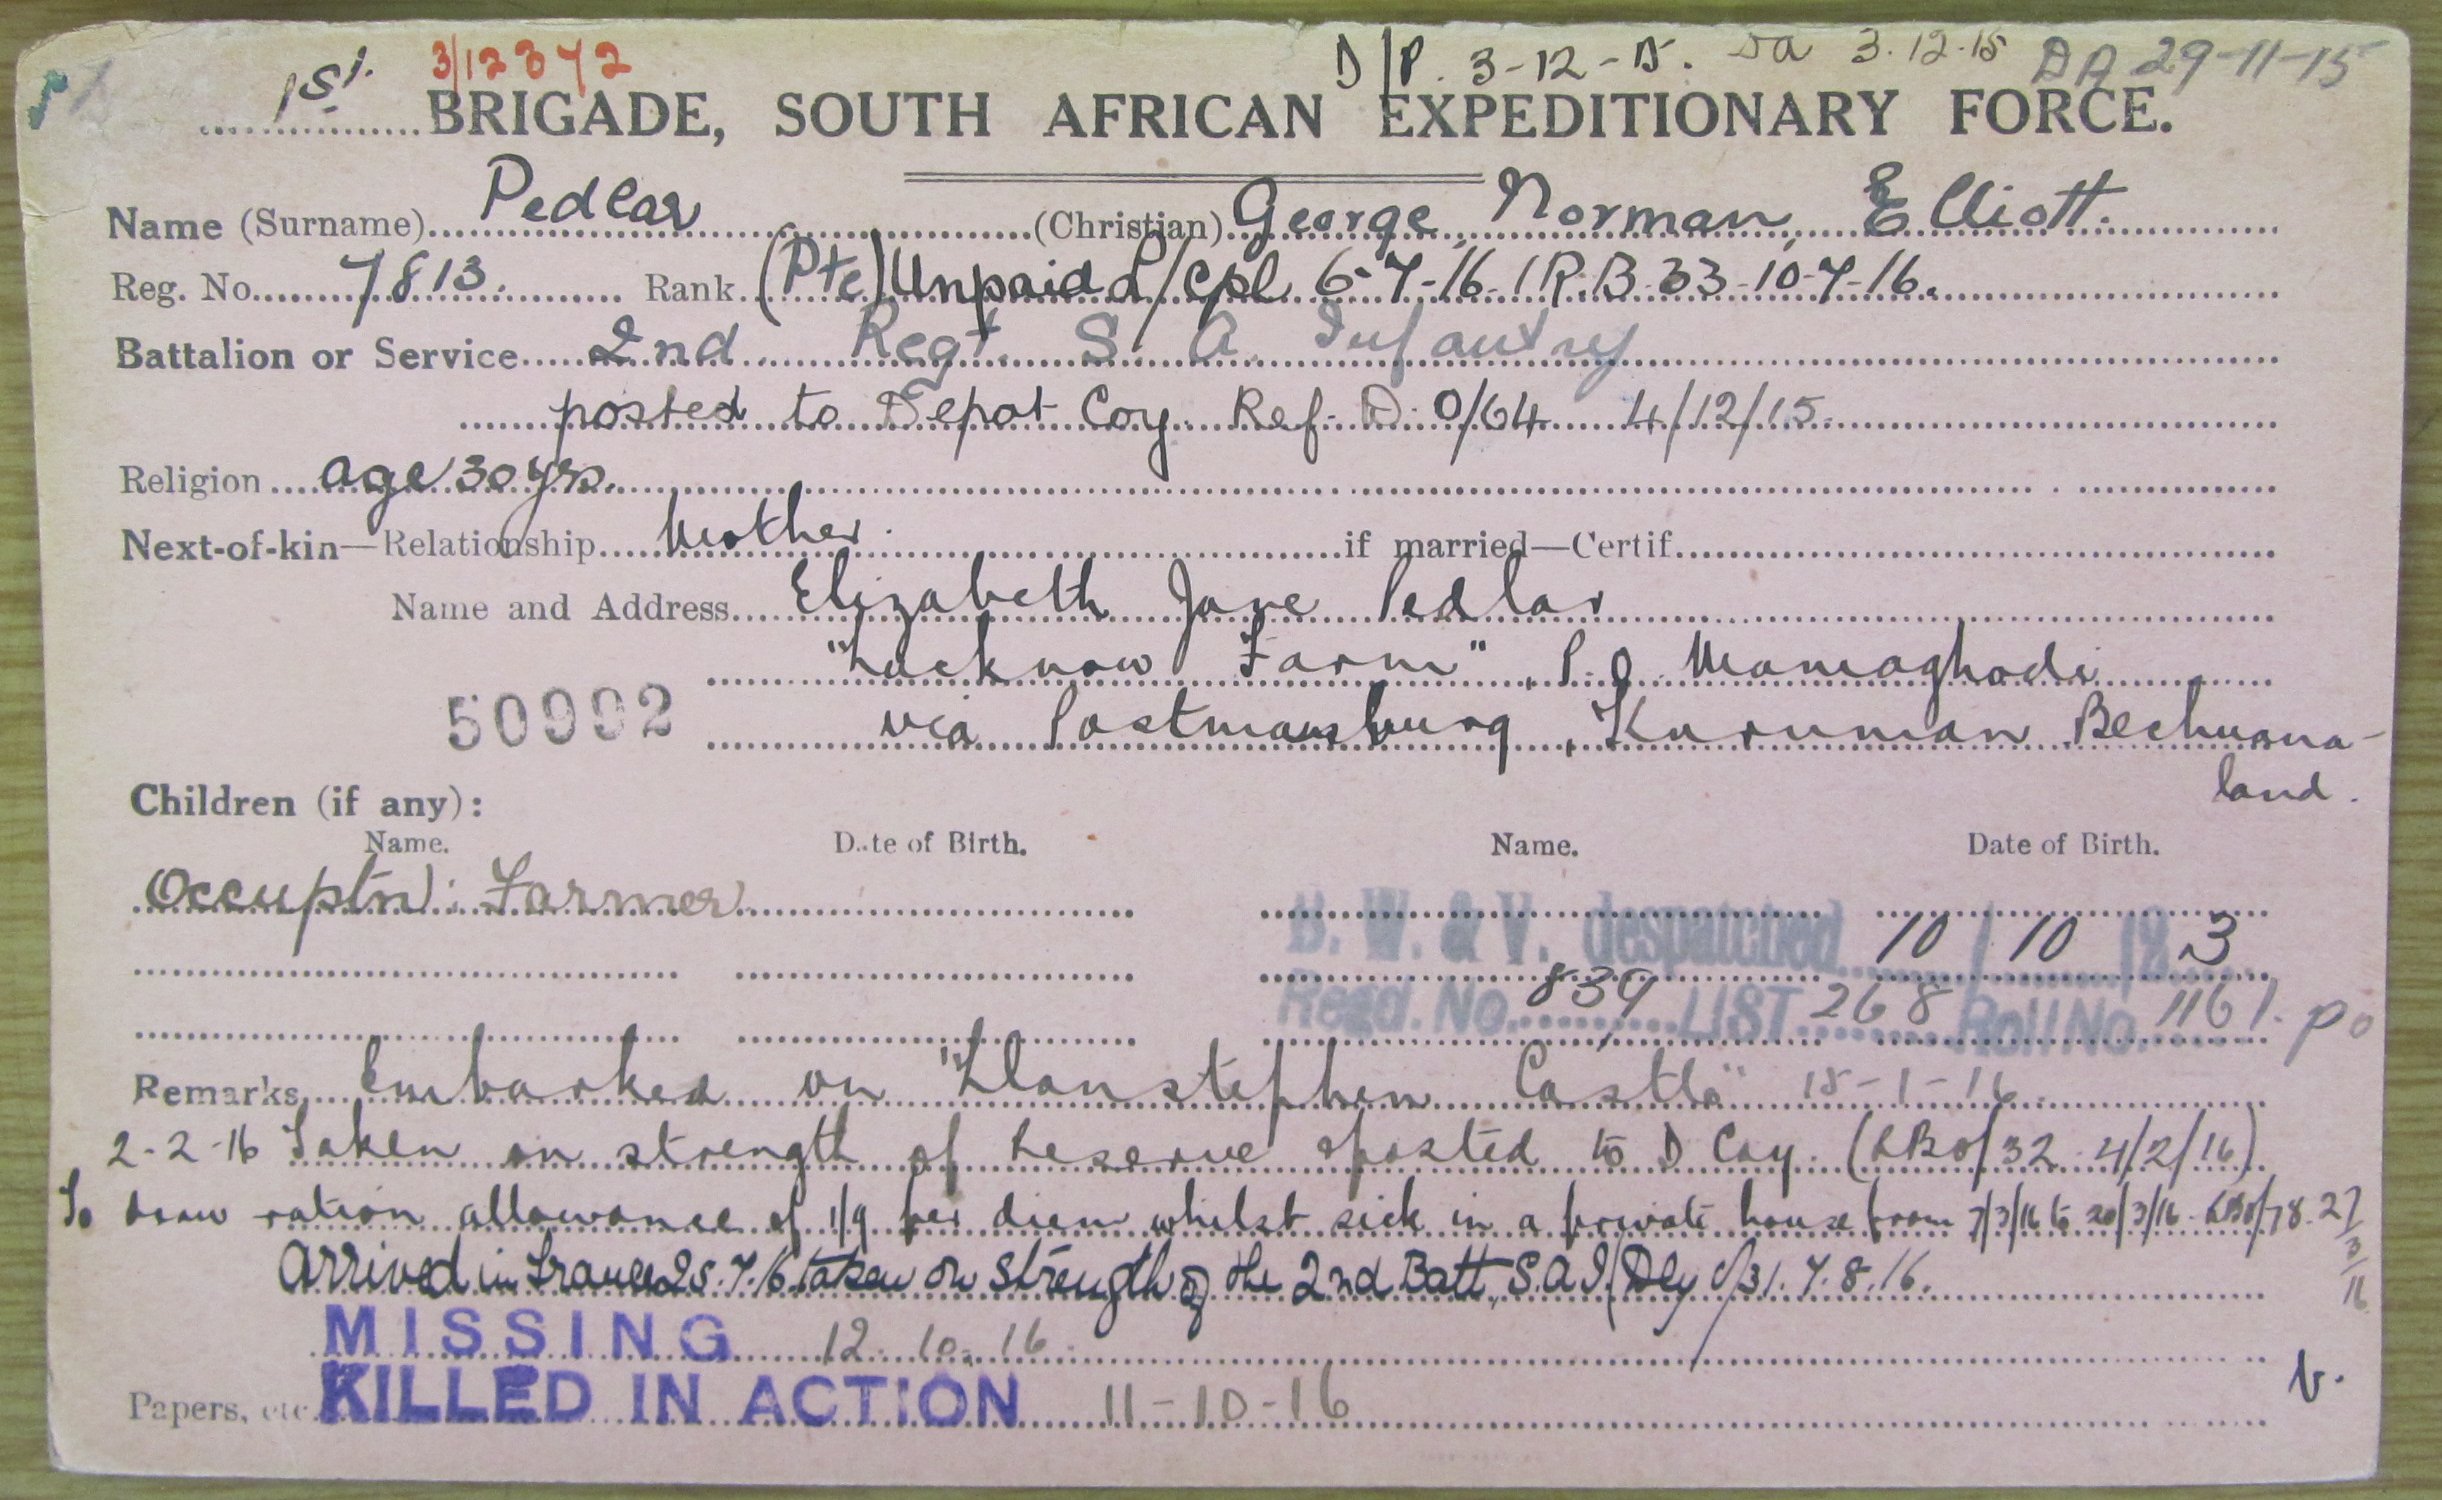 3/12342 D/P. 3-12-15. DA 3.12.15 DA 29-11-15
1st. BRIGADE, SOUTH AFRICAN EXPEDITIONARY FORCE.
Name (Surname) Pedlar (Christian) George, Norman, Elliott.
Reg. No. 7813. Rank (Pte) Unpaid L/Cpl 6-7-16. I R.B. 33-10-7-16.
Battalion or Service 2nd Regt. S. A. Infantry
posted to Depot Coy. Ref. D. O/64 4/12/15.
Religion age 30 yrs.
Next-of-kin—Relationship Mother. if married—Certif.
Name and Address Elizabeth Jane Pedlar
"Lucknow Farm", P.O. Mamaghodi
50992 via Postmansburg, Kuruman Bechuana-
land.
Children (if any):
Name. Date of Birth. Name. Date of Birth.
Occuptn: Farmer
B. W. & V. despatched 10 / 10 /
Regd. No. 839 LIST 268 Roll No. 1161. po
Remarks Embarked on "Llanstephen Castle" 15-1-16
2-2-16 Taken on strength of Reserve & posted to D Coy. (RBO/32 4/2/16)
To draw ration allowance of 1/9 per diem whilst sick in a private house from 7/3/16 to 20/3/16. RBO/78. 27/3/16
Arrived in France 25.7.16 taken on strength of the 2nd Batt, S.A.I. (Dly O/31. 7.8.16.
MISSING 12. 10. 16.
Papers, etc. KILLED IN ACTION 11-10-16